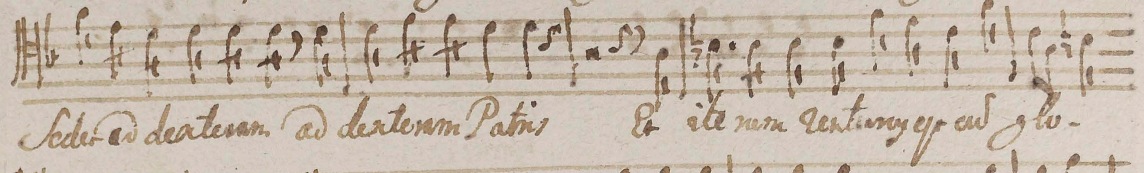 Sedet ad dexteram ad dexteram Patris Et ite rum venturus est cu̅ glo-